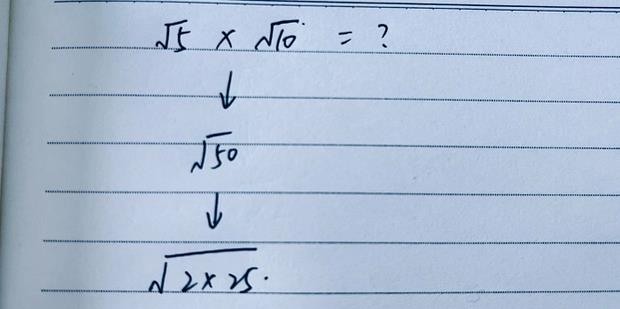 √5 × √10 = ?
↓
√50
↓
√2×25.